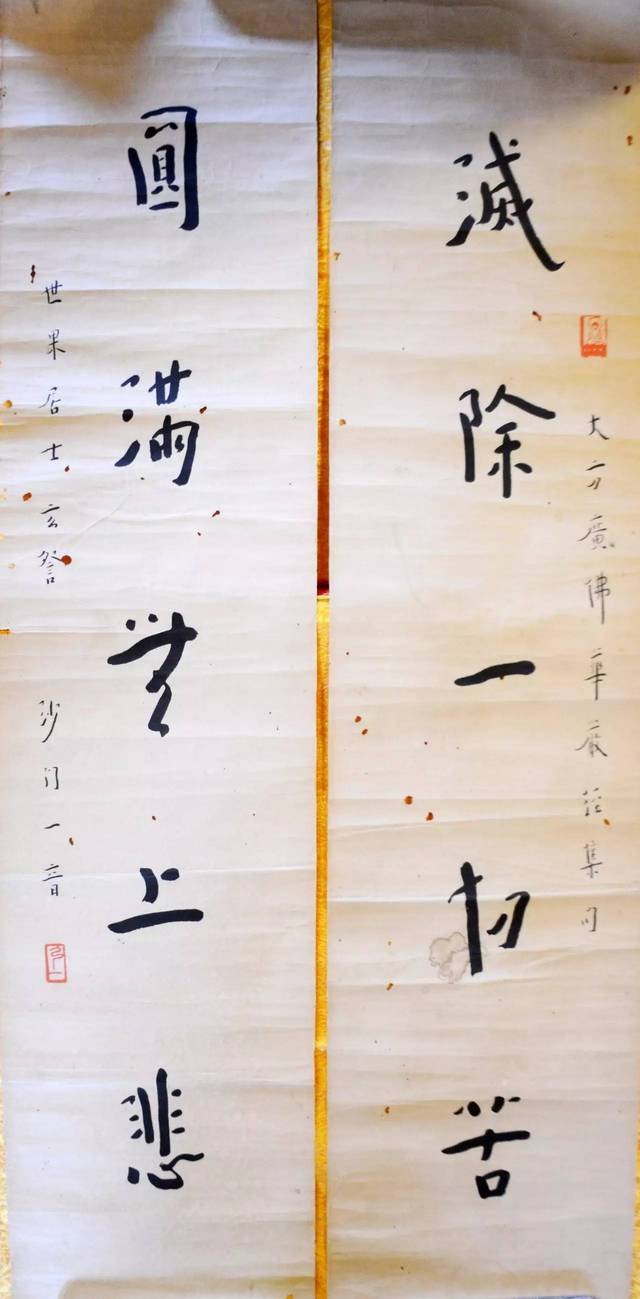 大方廣佛華嚴經集句
滅除一切苦
圓滿無上悲
世果居士玄詧
沙門一音